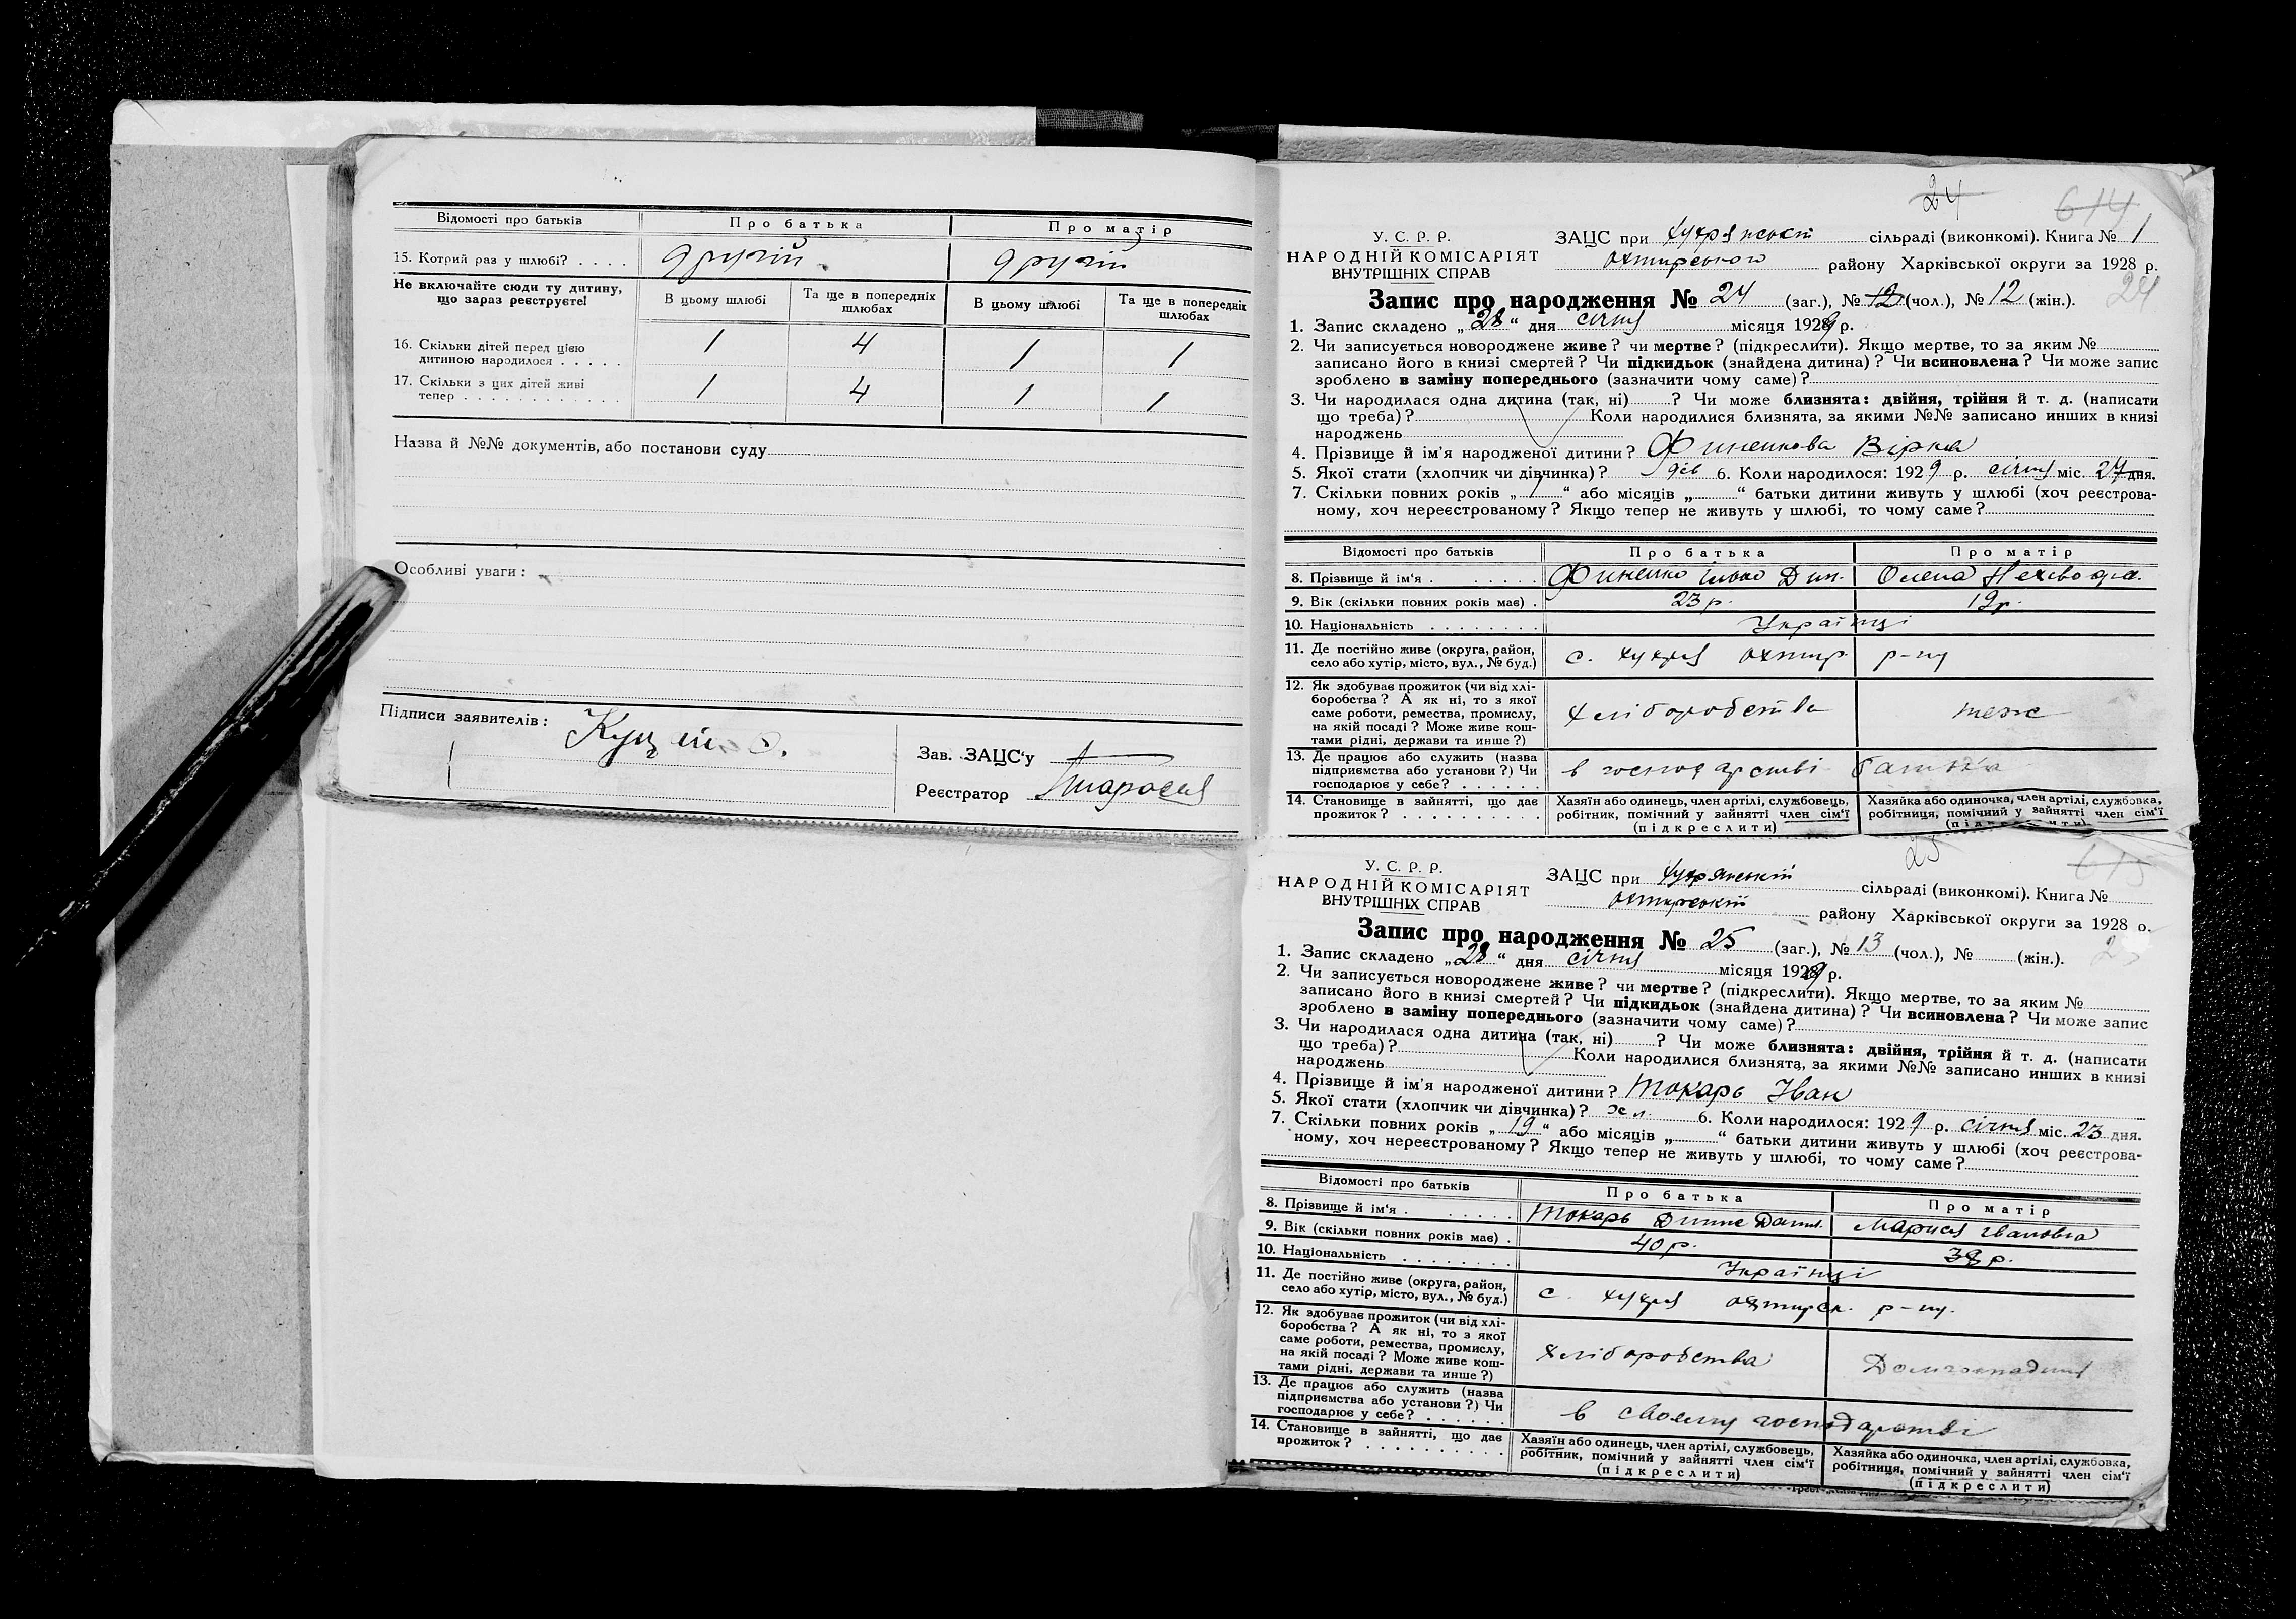 Відомості про батьків Про батька Про матір
15. Котрий раз у шлюбі? . . . . другий другий
Не включайте сюди ту дитину, що зараз реєструєте! В цьому шлюбі Та ще в попередніх шлюбах В цьому шлюбі Та ще в попередніх шлюбах
16. Скільки дітей перед цією
дитиною народилося . . . . . 1 4 1 1
17. Скільки з цих дітей живі
тепер . . . . . . . . . . . . 1 4 1 1
Назва й №№ документів, або постанови суду
Особливі уваги:
Підписи заявителів:
Зав. ЗАЦС'у
Реєстратор
24 614
У. С. Р. Р.
НАРОДНІЙ КОМІСАРІЯТ
ВНУТРІШНІХ СПРАВ
ЗАЦС при Хухрянській сільраді (виконкомі). Книга № 1
Охтирського району Харківської округи за 1928 р.
24
Запис про народження № 24 (заг.), № 12 (чол.), № 12 (жін.).
1. Запис складено „28“ дня січня місяця 1929 р.
2. Чи записується новороджене живе? чи мертве? (підкреслити). Якщо мертве, то за яким №
записано його в книзі смертей? Чи підкидьок (знайдена дитина)? Чи всиновлена? Чи може запис
зроблено в заміну попереднього (зазначити чому саме)?
3. Чи народилася одна дитина (так, ні) ? Чи може близнята: двійня, трійня й т. д. (написати
що треба)? Коли народилися близнята, за якими №№ записано инших в книзі
народжень
4. Прізвище й ім'я народженої дитини? Финенкова Вірка
5. Якої стати (хлопчик чи дівчинка)? дів 6. Коли народилося: 1929 р. січня міс. 24 дня.
7. Скільки повних років „1“ або місяців „ “ батьки дитини живуть у шлюбі (хоч реєстрова-
ному, хоч нереєстрованому? Якщо тепер не живуть у шлюбі, то чому саме?
Відомості про батьків Про батька Про матір
8. Прізвище й ім'я . . . . . . Финенко Олена
9. Вік (скільки повних років має) . 23 р. 19 р.
10. Національність . . . . . . . . Українці
11. Де постійно живе (округа, район,
село або хутір, місто, вул., № буд.) с. Хухря Охтир. р-ну
12. Як здобуває прожиток (чи від хлі-
боробства? А як ні, то з якої
саме роботи, ремества, промислу,
на якій посаді? Може живе кош-
тами рідні, держави та инше?) Хліборобства теж
13. Де працює або служить (назва
підприємства або установи?) Чи
господарює у себе? . . . . . . в господарстві батька
14. Становище в зайнятті, що дає
прожиток? . . . . . . . . . .
Хазяїн або одинець, член артілі, службовець,
робітник, помічний у зайнятті член сім'ї
(підкреслити)
Хазяйка або одиночка, член артілі, службовка,
робітниця, помічний у зайнятті член сім'ї
(підкреслити)
25 615
У. С. Р. Р.
НАРОДНІЙ КОМІСАРІЯТ
ВНУТРІШНІХ СПРАВ
ЗАЦС при Хухрянській сільраді (виконкомі). Книга №
Охтирській району Харківської округи за 1928 р.
Запис про народження № 25 (заг.), № 13 (чол.), № (жін.).
1. Запис складено „28“ дня січня місяця 1929 р.
2. Чи записується новороджене живе? чи мертве? (підкреслити). Якщо мертве, то за яким №
записано його в книзі смертей? Чи підкидьок (знайдена дитина)? Чи всиновлена? Чи може запис
зроблено в заміну попереднього (зазначити чому саме)?
3. Чи народилася одна дитина (так, ні) ? Чи може близнята: двійня, трійня й т. д. (написати
що треба)? Коли народилися близнята, за якими №№ записано инших в книзі
народжень
4. Прізвище й ім'я народженої дитини? Токарь Іван
5. Якої стати (хлопчик чи дівчинка)? хл. 6. Коли народилося: 1929 р. січня міс. 23 дня.
7. Скільки повних років „19“ або місяців „ “ батьки дитини живуть у шлюбі (хоч реєстрова-
ному, хоч нереєстрованому? Якщо тепер не живуть у шлюбі, то чому саме?
Відомості про батьків Про батька Про матір
8. Прізвище й ім'я . . . . . . Токарь Данил. Мария Івановна
9. Вік (скільки повних років має) . 40 р. 38 р.
10. Національність . . . . . . . . Українці
11. Де постійно живе (округа, район,
село або хутір, місто, вул., № буд.) с. Хухря Охтирск. р-ну.
12. Як здобуває прожиток (чи від хлі-
боробства? А як ні, то з якої
саме роботи, ремества, промислу,
на якій посаді? Може живе кош-
тами рідні, держави та инше?) Хліборобства
13. Де працює або служить (назва
підприємства або установи?) Чи
господарює у себе? . . . . . . в своєму господарстві
14. Становище в зайнятті, що дає
прожиток? . . . . . . . . . .
Хазяїн або одинець, член артілі, службовець,
робітник, помічний у зайнятті член сім'ї
(підкреслити)
Хазяйка або одиночка, член артілі, службовка,
робітниця, помічний у зайнятті член сім'ї
(підкреслити)